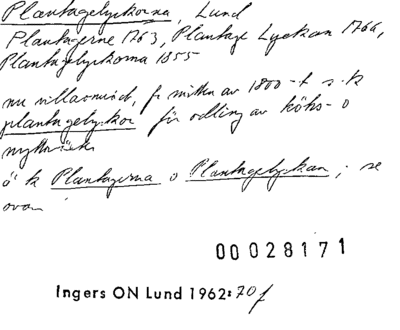 Plantagelyckorna, Lund
Plantagerne 1763, Plantage Lyckan 1766,
Plantagelyckorna 1855
nu villaområde, fr mitten av 1800-t s.k.
plantagelyckor för odling av köks- o
nyttoväxter
ä k Plantagerna o Plantagelyckan; se
ovan
00028171
Ingers ON Lund 1962: 70 f